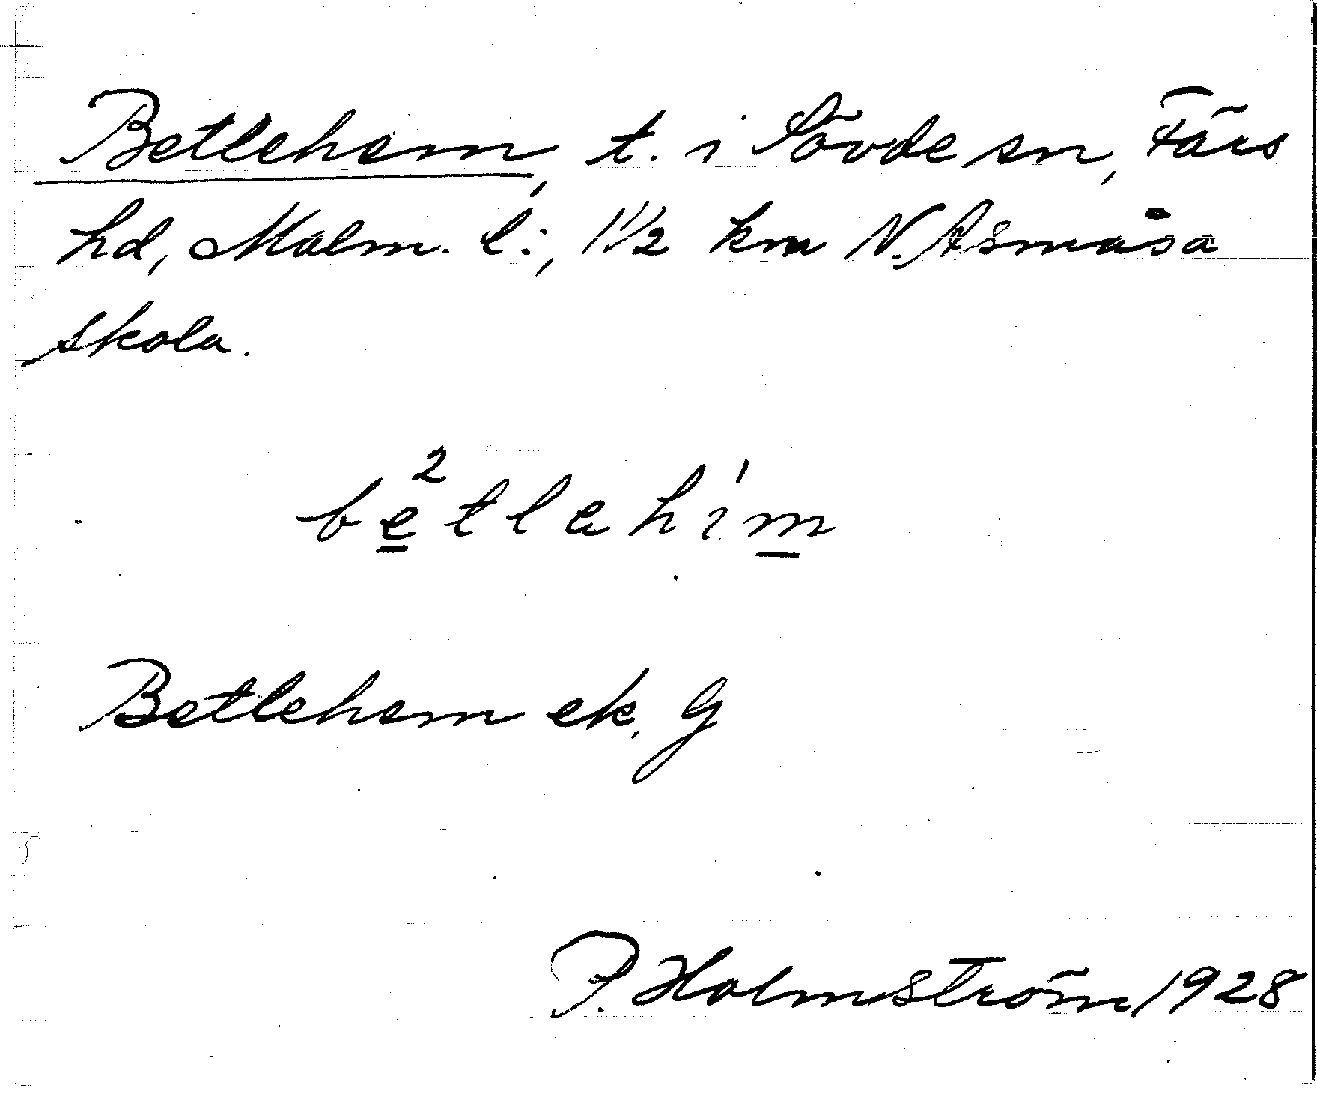 Betlehem, t. i Sövde sn, Färs
hd, Malm. l:, 1 1/2 km N. Åsmåsa
skola.
be²tlahi'm
Betlehem ek. G
P. Holmström 1928